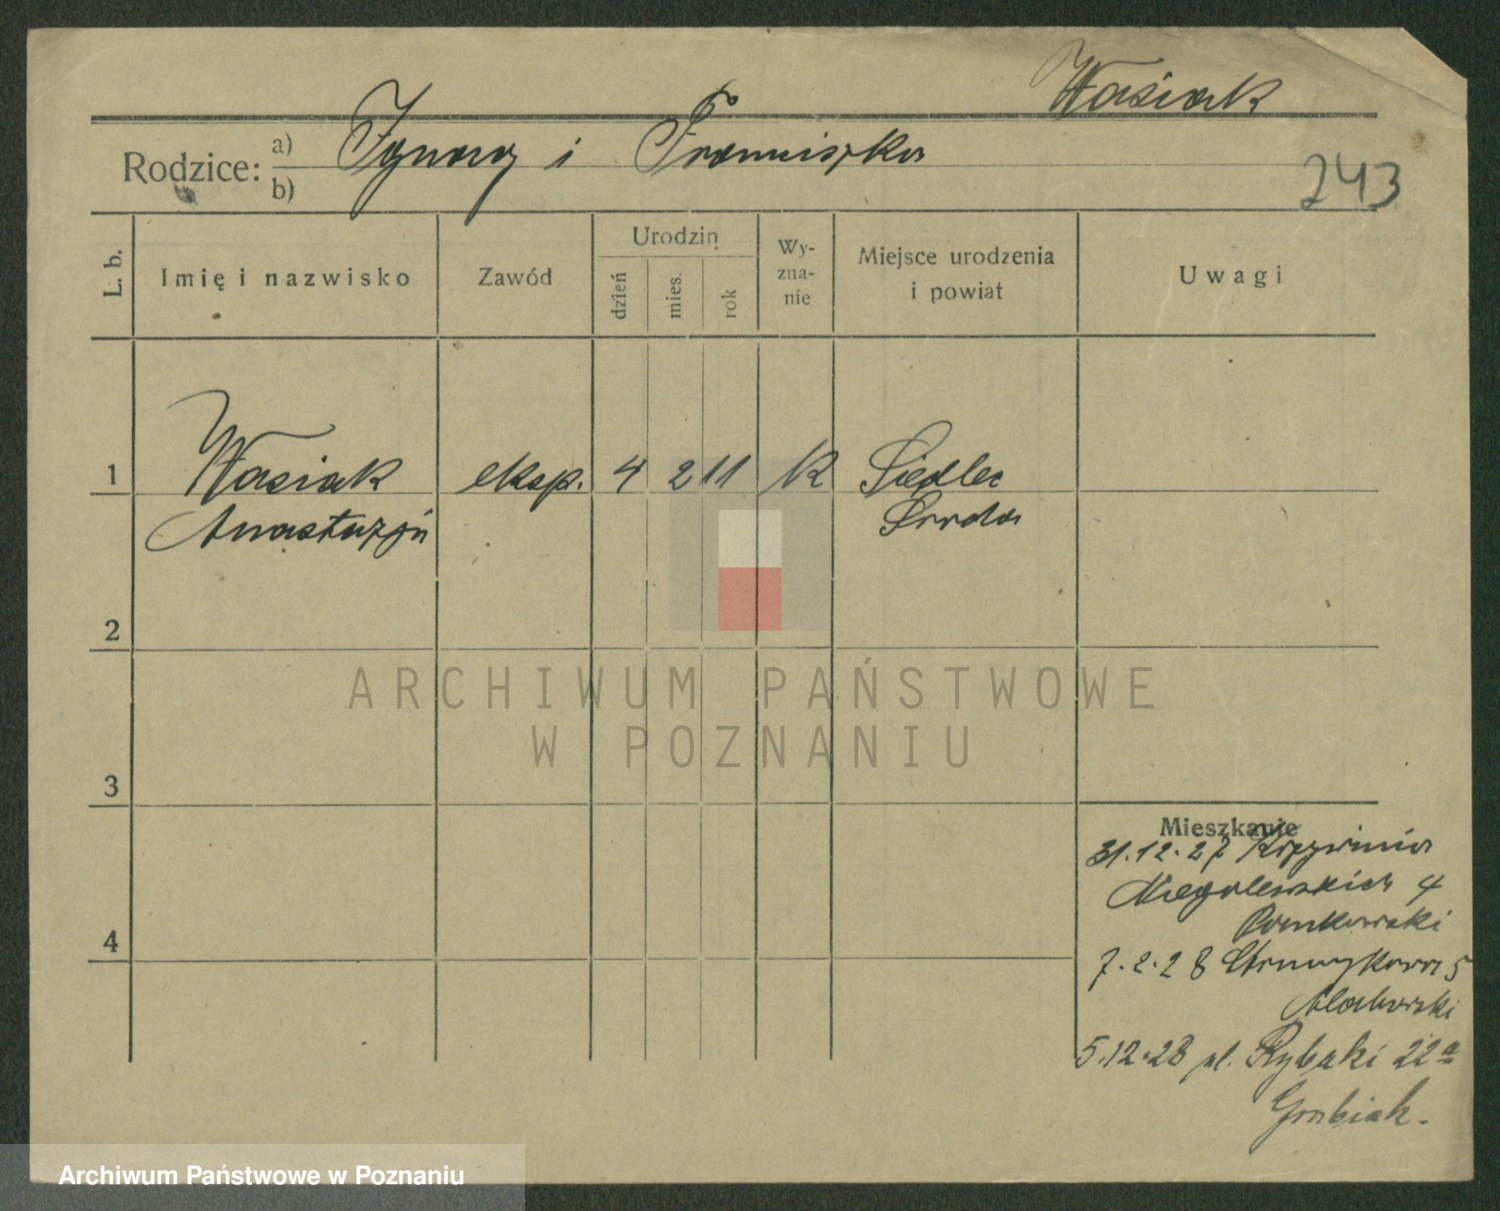 Wasiak
Rodzice: a) Ignacy i Franciszka
b)
243
L. b.
Imię i nazwisko
Zawód
Urodzin
dzień
mies.
rok
Wy-
zna-
nie
Miejsce urodzenia
i powiat
Uwagi
1 Wasiak eksp. 4 2 11 K Siedlec
Anastazja Środa
2
ARCHIWUM PAŃSTWOWE
W POZNANIU
3
Mieszkanie
31.12.27 Krzywinia
Niegolewskich 4
4
7.2.28 5
5.12.28 pl. Rybaki 22a
Grobiak.
Archiwum Państwowe w Poznaniu